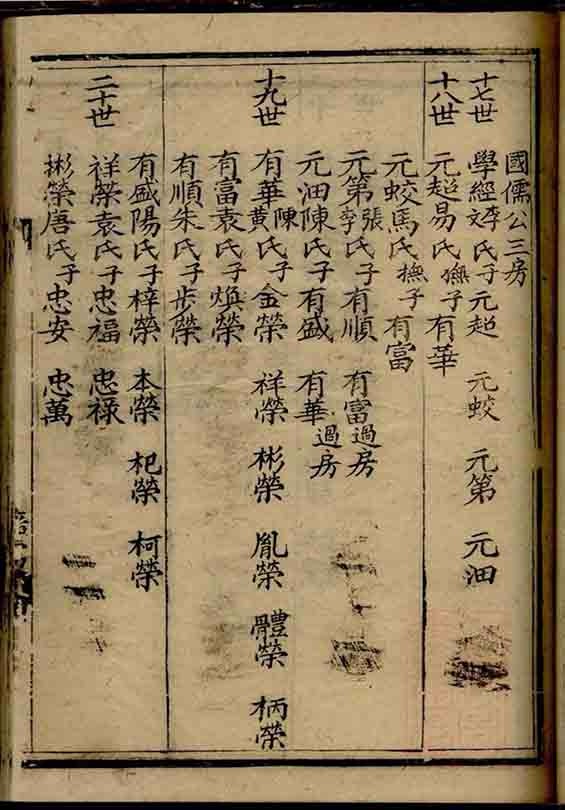 國儒公三房
十七世 學經文李氏子元起 元蛟 元第 元油
十八世 元起易氏撫子有華
元蛟馬氏撫子有富
元第張李氏子有順 有富過房
元油陳氏子有盛 有華過房
十九世 有華陳黄氏子金榮 祥榮 彬榮 胤榮 體榮 柄榮
有富袁氏子煥榮
有順朱氏子步榮
有盛陽氏子梓榮 本榮 杞榮 柯榮
二十世 祥榮袁氏子忠福 忠禄
彬榮唐氏子忠安 忠萬